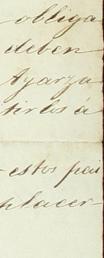 obliga
deben
Ayarza
tirlos á
estos pai
placer